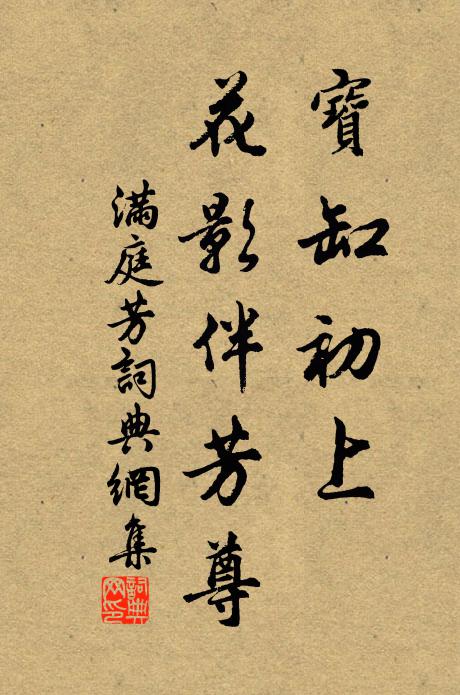 寶缸初上
花影伴芳尊
滿庭芳詞典網集
詞典
网印